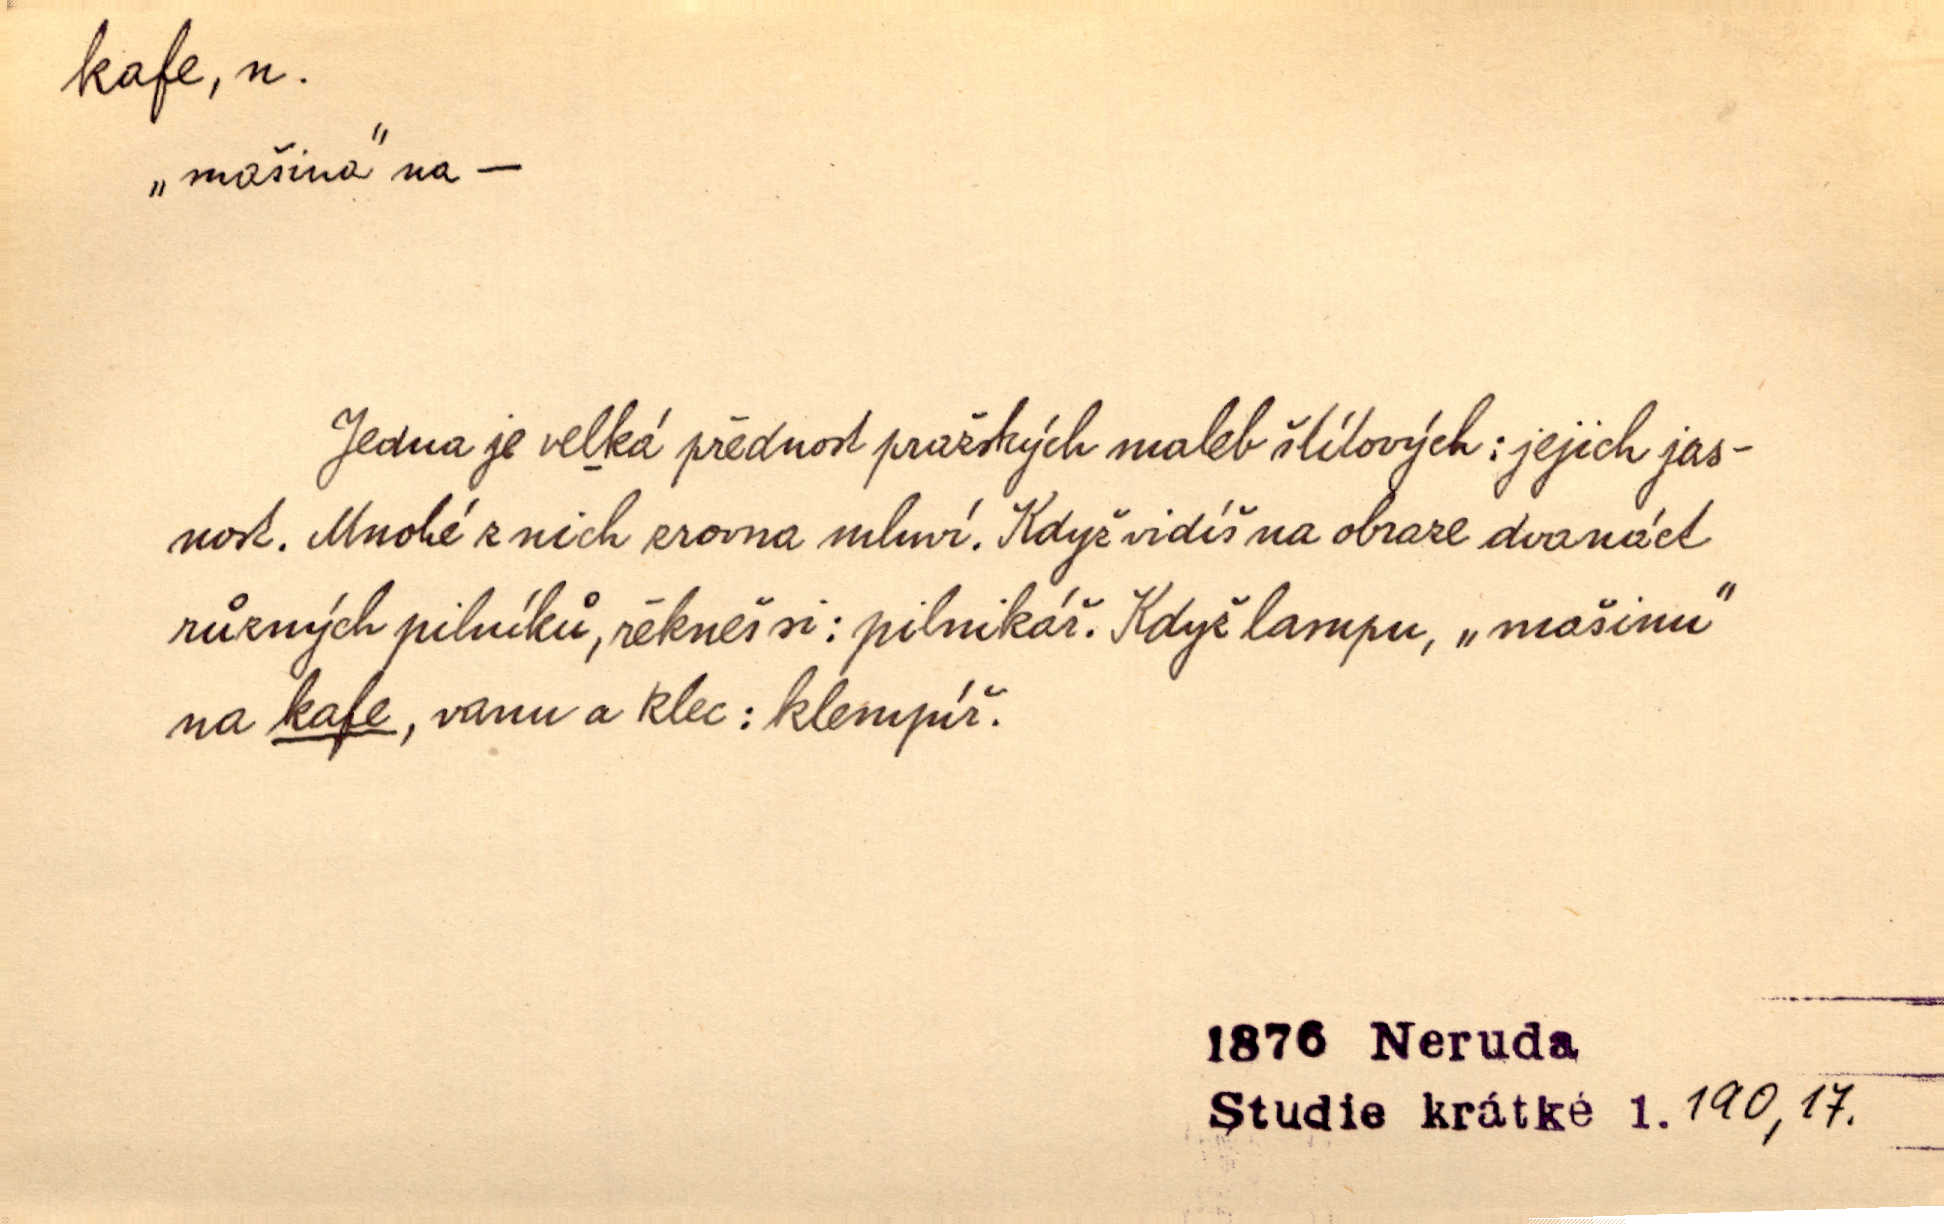 kafe, n.
„mašina" na —
Jedna je velká přednost pražských maleb štítových: jejich jas-
nost. Mnohé z nich zrovna mluví. Když vidíš na obraze dvanáct
různých pilníků, řekneš si: pilnikář. Když lampu, „mašinu"
na kafe, vanu a klec: klempíř.
1876 Neruda
Studie krátké 1. 190, 17.